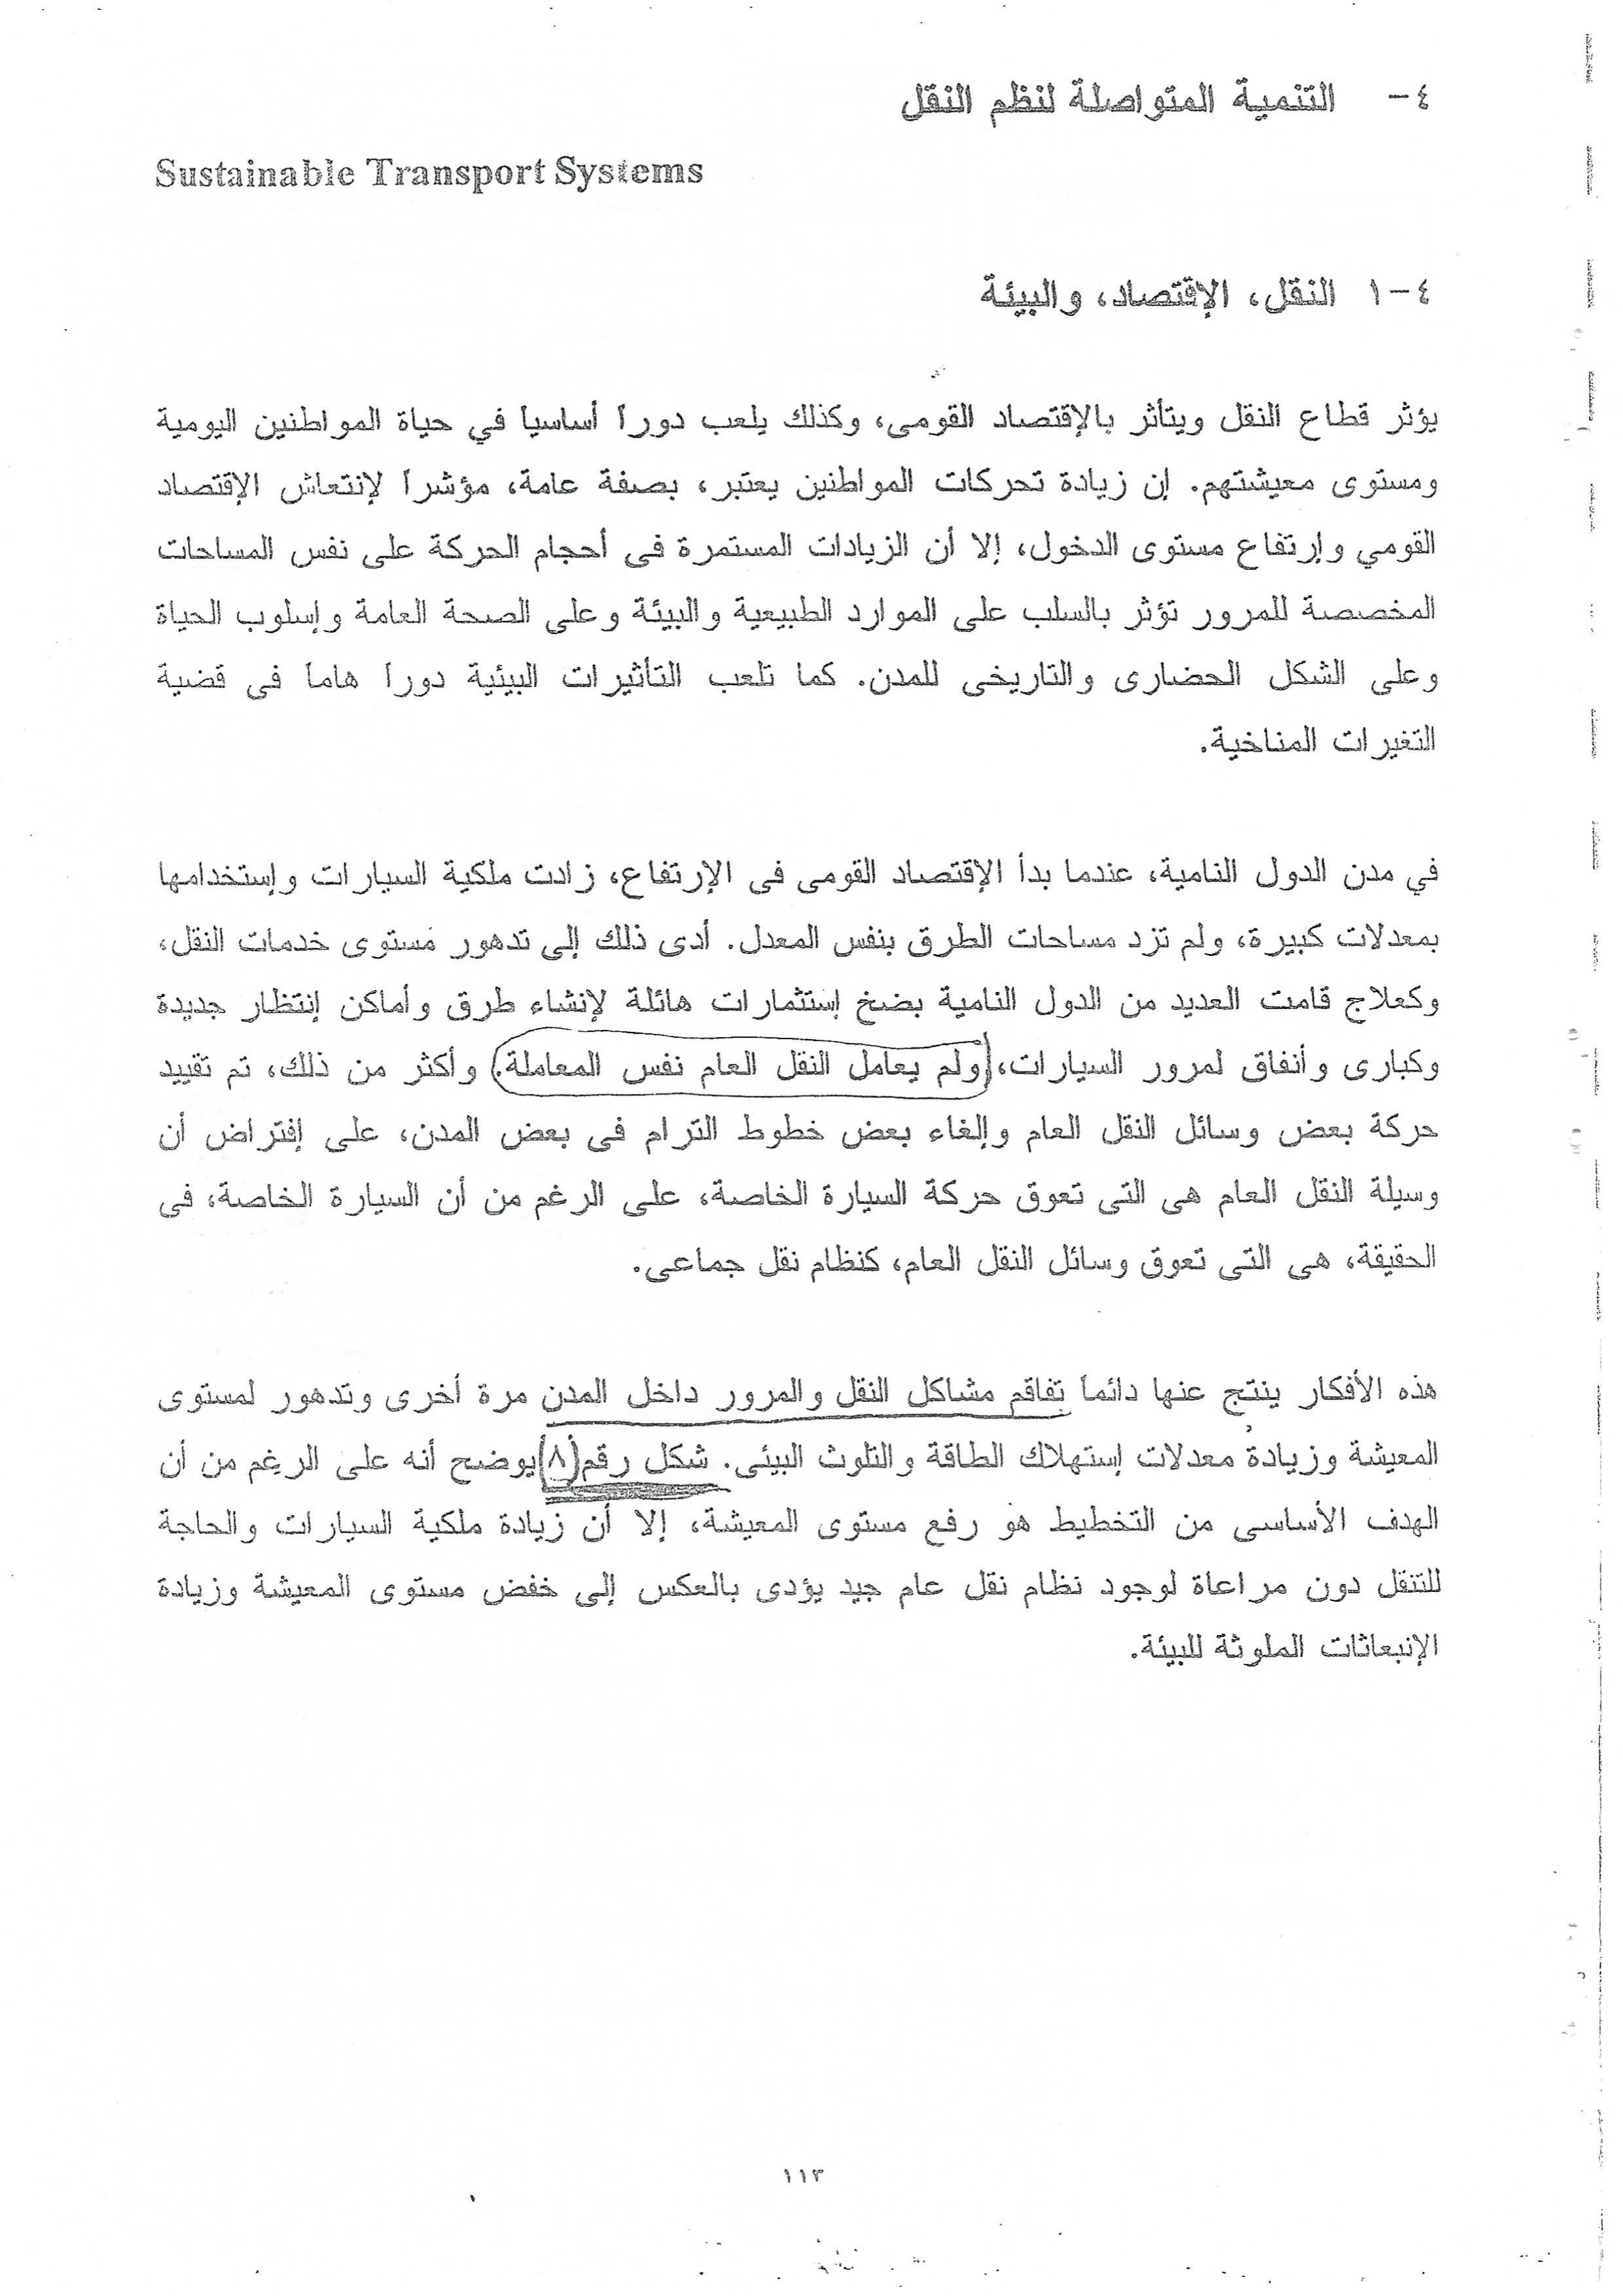 ٤- التنمية المتواصلة لنظم النقل
Sustainable Transport Systems
٤-١ النقل، الإقتصاد، والبيئة
يؤثر قطاع النقل ويتأثر بالإقتصاد القومى، وكذلك يلعب دوراً أساسياً في حياة المواطنين اليومية
ومستوى معيشتهم. إن زيادة تحركات المواطنين يعتبر، بصفة عامة، مؤشراً لإنتعاش الإقتصاد
القومي وإرتفاع مستوى الدخول، إلا أن الزيادات المستمرة فى أحجام الحركة على نفس المساحات
المخصصة للمرور تؤثر بالسلب على الموارد الطبيعية والبيئة وعلى الصحة العامة وإسلوب الحياة
وعلى الشكل الحضارى والتاريخى للمدن. كما تلعب التأثيرات البيئية دوراً هاماً فى قضية
التغيرات المناخية.
في مدن الدول النامية، عندما بدأ الإقتصاد القومى فى الإرتفاع، زادت ملكية السيارات وإستخدامها
بمعدلات كبيرة، ولم تزد مساحات الطرق بنفس المعدل. أدى ذلك إلى تدهور مستوى خدمات النقل،
وكعلاج قامت العديد من الدول النامية بضخ إستثمارات هائلة لإنشاء طرق وأماكن إنتظار جديدة
وكبارى وأنفاق لمرور السيارات، (ولم يعامل النقل العام نفس المعاملة.) وأكثر من ذلك، تم تقييد
حركة بعض وسائل النقل العام وإلغاء بعض خطوط الترام فى بعض المدن، على إفتراض أن
وسيلة النقل العام هى التى تعوق حركة السيارة الخاصة، على الرغم من أن السيارة الخاصة، فى
الحقيقة، هى التى تعوق وسائل النقل العام، كنظام نقل جماعى.
هذه الأفكار ينتج عنها دائماً تفاقم مشاكل النقل والمرور داخل المدن مرة أخرى وتدهور لمستوى
المعيشة وزيادة معدلات إستهلاك الطاقة والتلوث البيئى. شكل رقم (٨) يوضح أنه على الرغم من أن
الهدف الأساسى من التخطيط هو رفع مستوى المعيشة، إلا أن زيادة ملكية السيارات والحاجة
للتنقل دون مراعاة لوجود نظام نقل عام جيد يؤدى بالعكس إلى خفض مستوى المعيشة وزيادة
الإنبعاثات الملوثة للبيئة.
١١٣